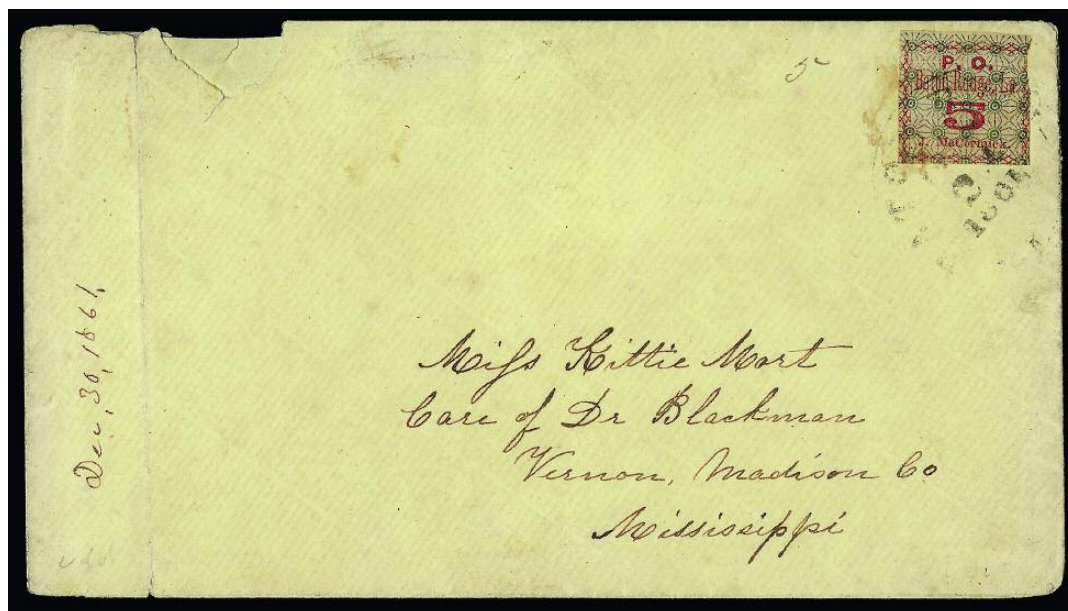 5
P. O.
Baton Rouge, La.
5
J. McCormick.
Dec. 30, 1861,
Miſs Kittie Mort
Care of Dr Blackman
Vernon, Madison Co
Mississippi